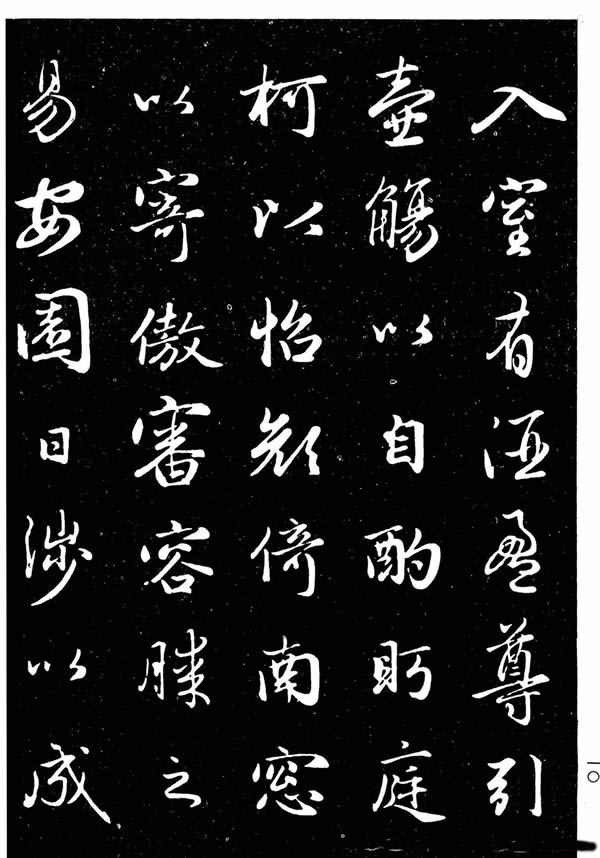 入室有酒盈尊引
壺觴以自酌眄庭
柯以怡顏倚南窓
以寄傲審容膝之
易安園日涉以成
一〇